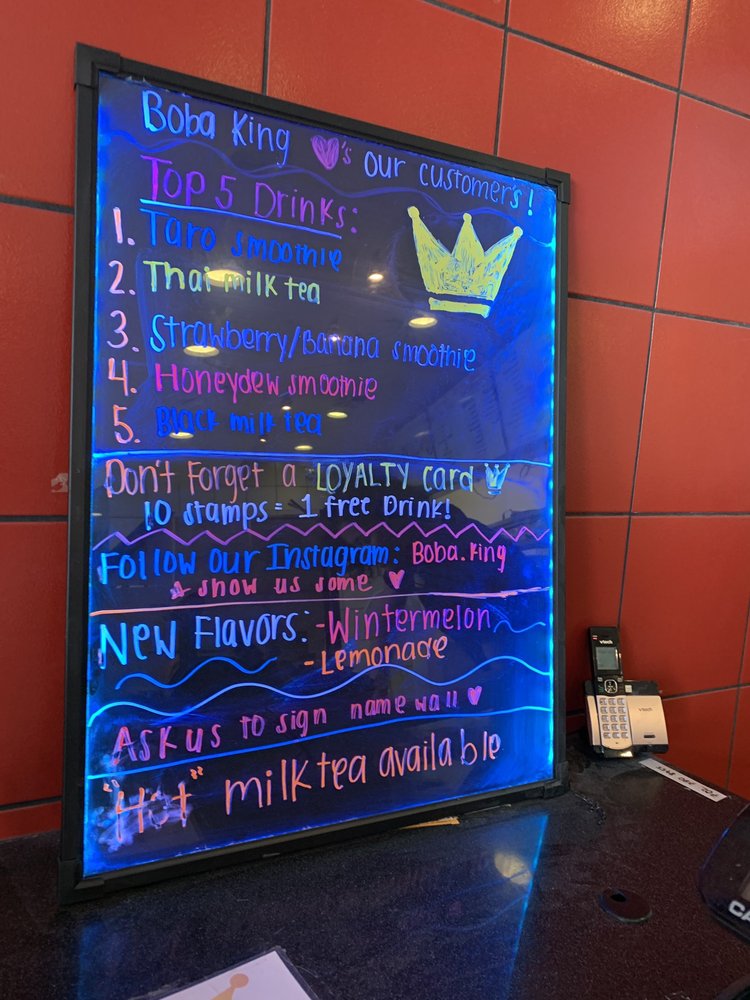 Boba King ♥'s our customer's!
Top 5 Drinks:
1. Taro smoothie
2. Thai milk tea
3. Strawberry/Banana smoothie
4. Honeydew smoothie
5. Black milk tea
Don't Forget a LOYALTY card
10 stamps = 1 free Drink!
Follow our Instagram: Boba.king
& show us some ♥
New Flavors: -Wintermelon
-Lemonade
Ask us to sign name wall ♥
"Hot" milk tea available
vtech
vtech